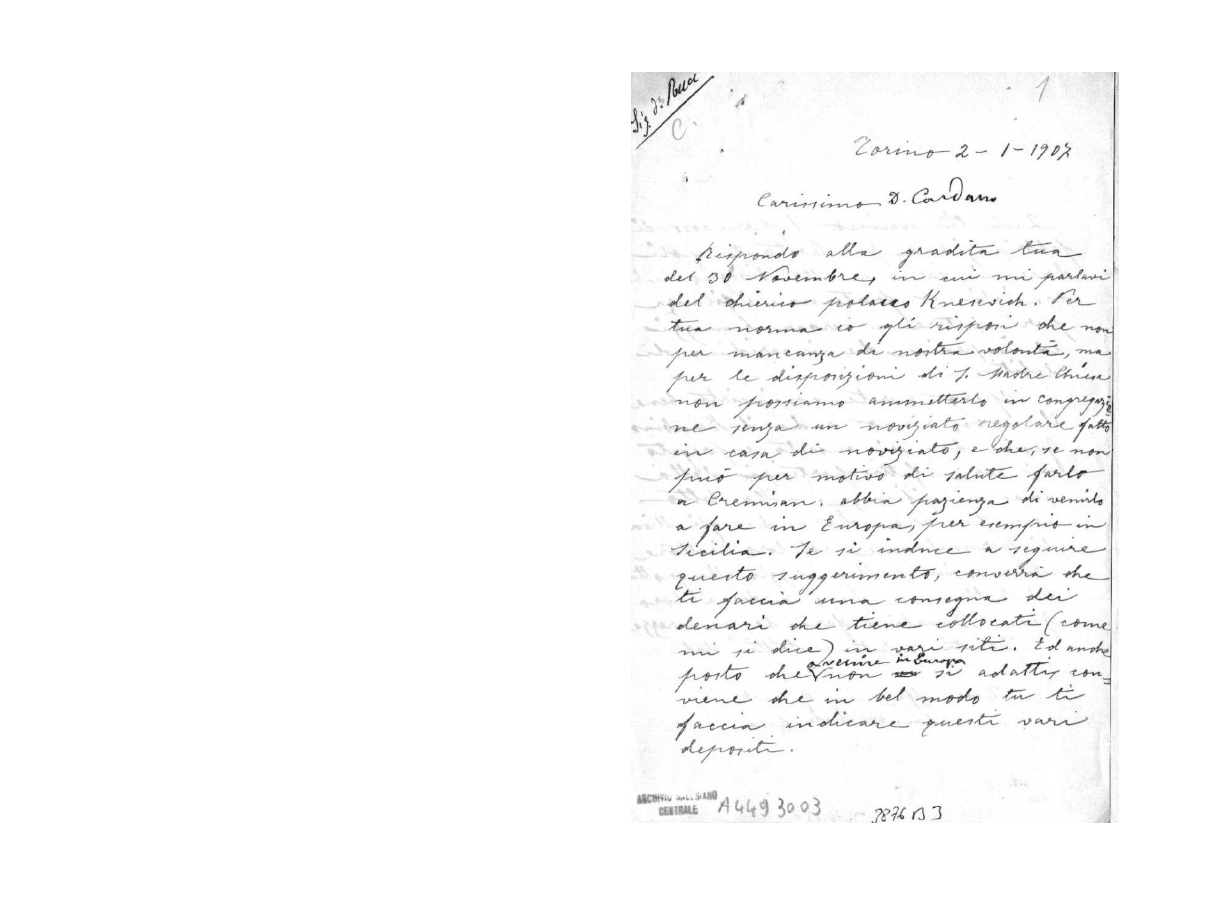 Sig. D. Rua
1
C
Torino 2 - 1 - 1907
Carissimo D. Cardano
Rispondo alla gradita tua
del 30 Novembre, in cui mi parlavi
del chierico polacco Knesevich. Per
tua norma io gli risposi che non
per mancanza di nostra volontà, ma
per le disposizioni di S. Madre Chiesa
non possiamo ammetterlo in congregazio
ne senza un noviziato regolare fatto
in casa di noviziato, e che, se non
può per motivo di salute farlo
a Cremisan, abbia pazienza di venirlo
a fare in Europa, per esempio in
Sicilia. Se si induce a seguire
questo suggerimento, converrà che
ti faccia una consegna dei
denari che tiene collocati (come
mi si dice) in vari siti. Ed anche
a venire in Europa
posto che non si adatti, con=
viene che in bel modo tu ti
faccia indicare questi vari
depositi.
ARCHIVIO SALESIANO
CENTRALE
A4493003
3876 B3